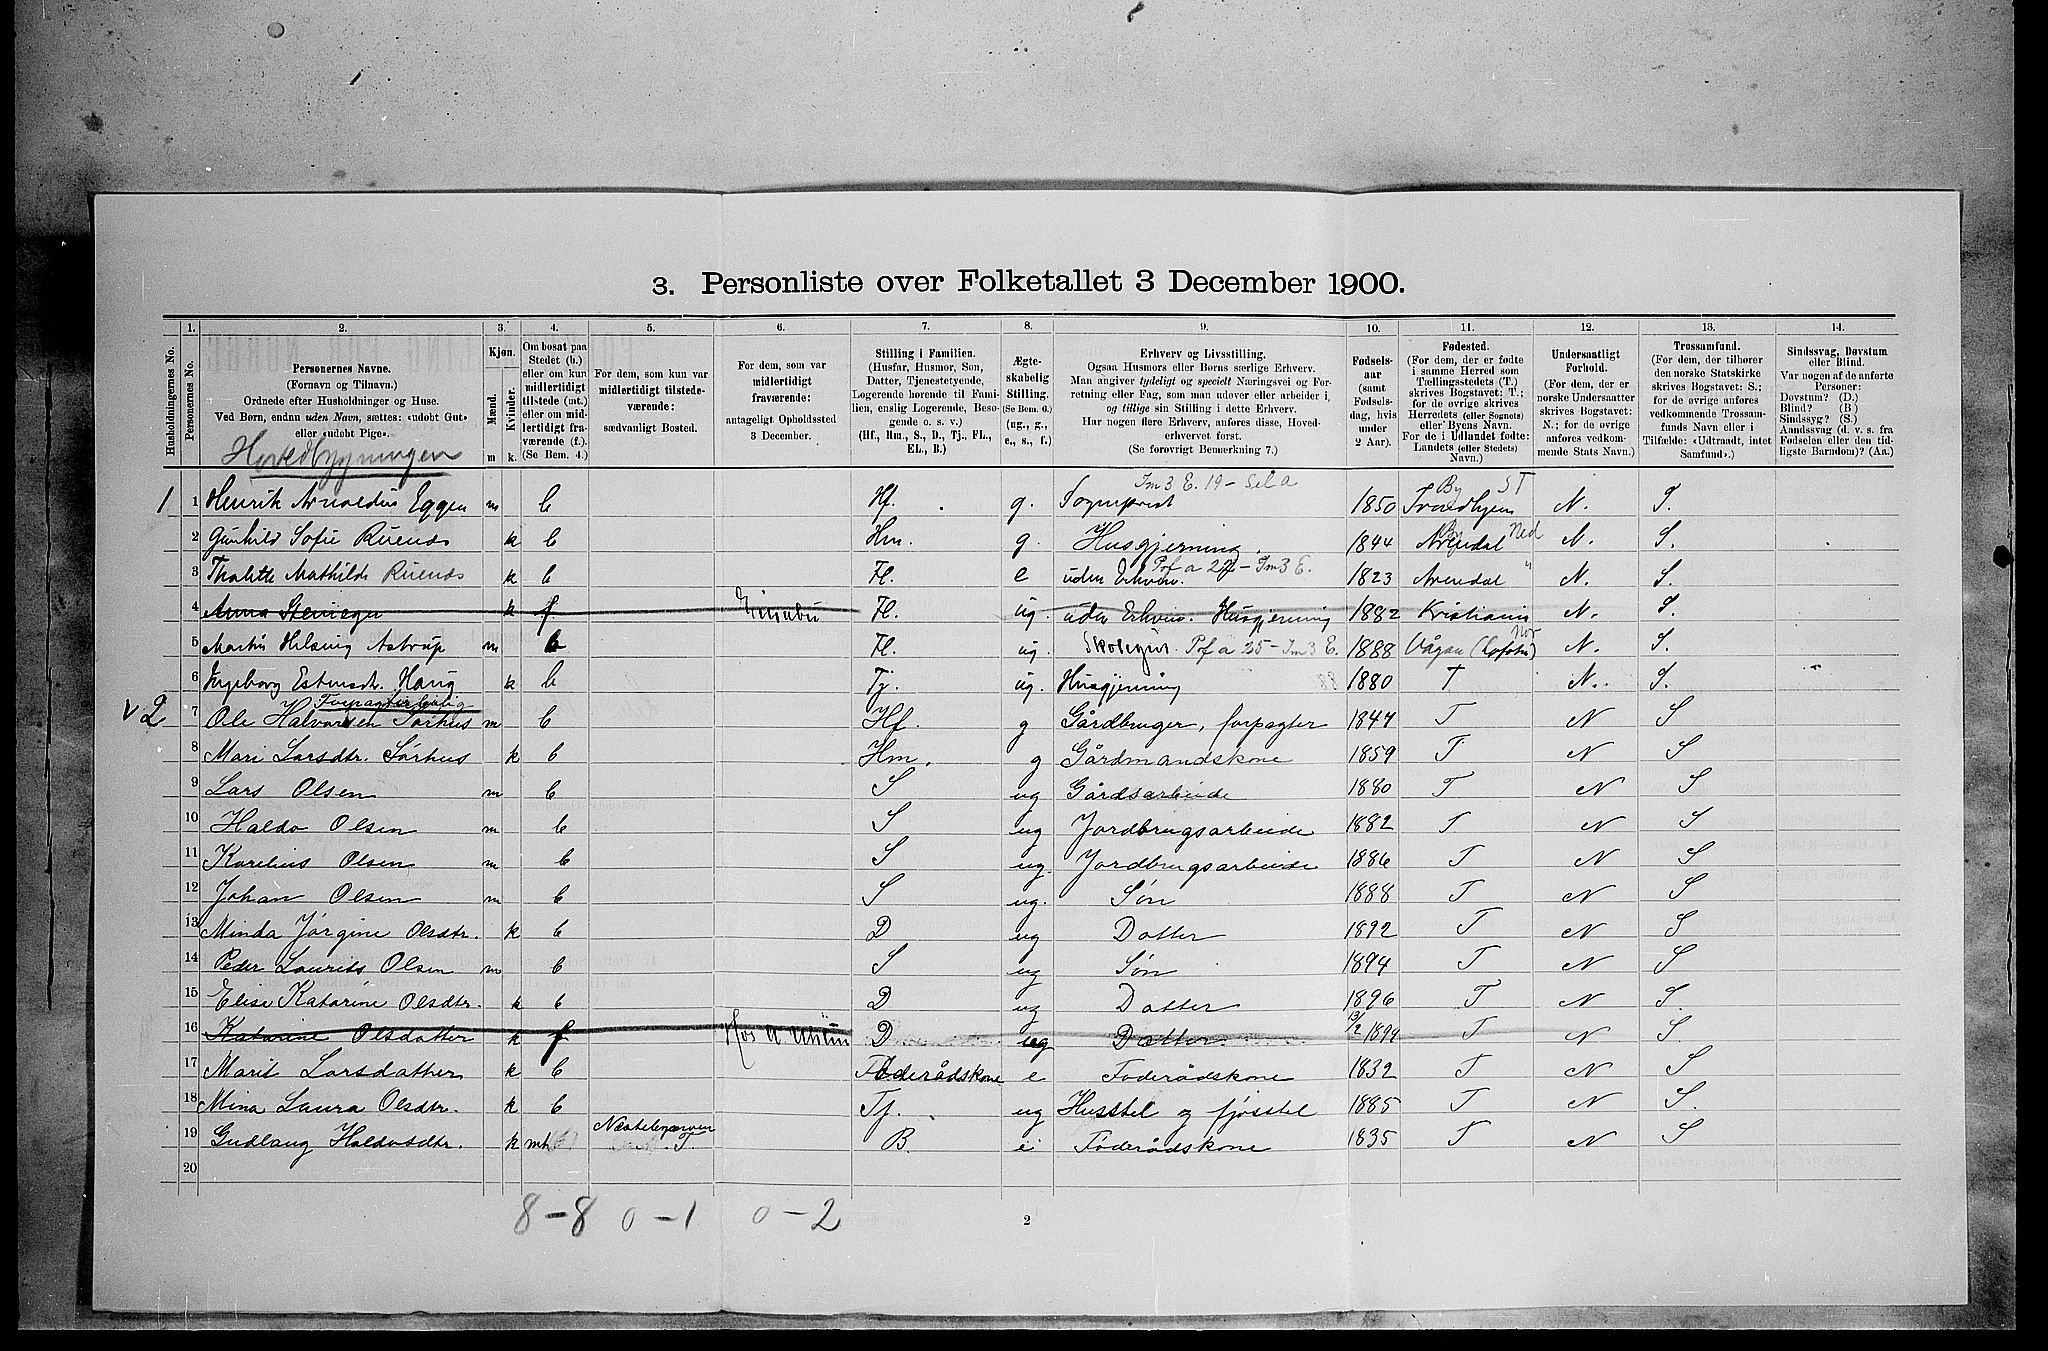 3. Personliste over Folketallet 3 December 1900.
Husholdningernes No.
1. Personernes No.
2. Personernes Navne. (Fornavn og Tilnavn.) Ordnede efter Husholdninger og Huse. Ved Børn, endnu uden Navn, sættes: «udøbt Gut» eller «udøbt Pige».
3. Kjøn. Mænd. Kvinder. m k.
4. Om bosat paa Stedet (b.) eller om kun midlertidigt tilstede (mt.) eller om midlertidigt fraværende (f.) (Se Bem. 4.)
5. For dem, som kun var midlertidigt tilstedeværende: sædvanligt Bosted.
6. For dem, som var midlertidigt fraværende: antageligt Opholdssted 3 December.
7. Stilling i Familien. (Husfar, Husmor, Søn, Datter, Tjenestetyende, Logerende hørende til Familien, enslig Logerende, Besøgende o. s. v.) (Hf., Hm., S., D., Tj., FL., EL., B.)
8. Ægteskabelig Stilling. (Se Bem. 6.) (ug., g., e., s., f.)
9. Erhverv og Livsstilling. Ogsaa Husmors eller Børns særlige Erhverv. Man angiver tydeligt og specielt Næringsvei og Forretning eller Fag, som man udøver eller arbeider i, og tillige sin Stilling i dette Erhverv. Har nogen flere Erhverv, anføres disse, Hovederhvervet først. (Se forøvrigt Bemerkning 7.)
10. Fødselsaar (samt Fødselsdag, hvis under 2 Aar).
11. Fødested. (For dem, der er fødte i samme Herred som Tællingsstedets (T.) skrives Bogstavet: T.; for de øvrige skrives Herredets (eller Sognets) eller Byens Navn. For de i Udlandet fødte: Landets (eller Stedets) Navn.)
12. Undersaatligt Forhold. (For dem, der er norske Undersaatter skrives Bogstavet: N.; for de øvrige anføres vedkommende Stats Navn).
13. Trossamfund. (For dem, der tilhører den norske Statskirke skrives Bogstavet: S.; for de øvrige anføres vedkommende Trossamfunds Navn eller i Tilfælde: «Udtraadt, intet Samfund».)
14. Sindssvag, Døvstum eller Blind. Var nogen af de anførte Personer: Døvstum? (D.) Blind? (B) Sindssyg? (S.) Aandssvag (d. v. s. fra Fødselen eller den tidligste Barndom)? (Aa.)
Hovedbygningen
1 1 Henrik Arnoldus Eggen m b Hf. g. Sogneprest 1850 By Trondhjem ST N. S.
2 Gunhild Sofie k b Hm. g Husgjerning. 1844 By Arendal Ned N. S.
3 Thalette Mathilde k b Fl. e uden Erhverv. 1823 Arendal " N. S.
4 Anna k f Fl. ug. uden Erhverv. Husgjerning 1882 Kristiania N. S.
5 Martin Helsing Astrup m b Fl. ug. 1888 Vågan (Lofoten) N. S.
6 Ingeborg Estensdr. Haug k b Tj. ug. Husgjerning 1880 T N. S.
Forpagterbolig
v2 7 Ole Halvorsen Sørhus m b Hf. g Gårdbruger, forpagter 1844 T N S
8 Mari Larsdtr. Sørhus k b Hm. g Gårdmandskone 1859 T N S
9 Lars Olsen m b S ug Gårdsarbeide 1880 T N S
10 Haldo Olsen m b S ug Jordbrugsarbeide 1882 T N S
11 Karelius Olsen m b S ug. Jordbrugsarbeide 1886 T N S
12 Johan Olsen m b S ug. Søn 1888 T N S
13 Minda Jørgine Olsdtr. k b D ug Datter 1892 T N S
14 Peder Laurits Olsen m b S ug Søn 1894 T N S
15 Elise Katarine Olsdtr. k b D ug Datter 1896 T N S.
16 Katarine Olsdatter k f Hos D ug Datter 13/2 1899 T N S.
17 Marit Larsdatter k b Foderådskone e Foderådskone 1832 T N S
18 Mina Laura Olsdtr. k b Tj. ug Husstel og fjøsstel 1885 T N S.
19 Gudlaug Haldosdtr. k mt T. B. e Føderådskone 1835 T N S
20
8-8 0-1 0-2
2